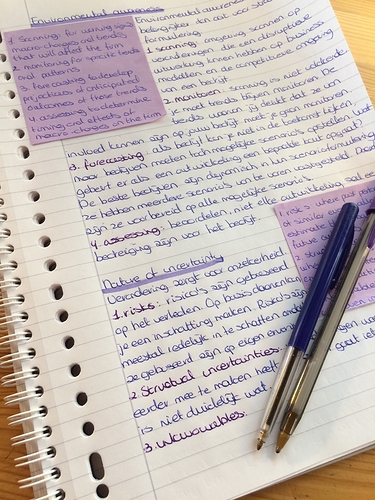 Environmental awareness
1. Scanning for warning signs
macro-changes and trends
that will affect the firm
2. monitoring for specific trends
and patterns
3. forecasting to develop
projections of anticipated
outcomes of those trends
4. assessing to determine
timing and effects of
macro-changes on the firm
Environmental awareness
belangrijker dan ooit voor
formulering.
1. scanning: omgeving scannen op
veranderingen, die een disruptieve
uitwerking kunnen hebben op business
modellen en de competitieve omgeving
van een bedrijf
2. monitoren: scanning is niet voldoende.
je moet trends blijven monitoren.
trends waarvan jij denkt dat ze van
invloed kunnen zijn op jouw bedrijf moet je gaan monitoren
3. forecasting: als bedrijf kan je niet in de toekomst kijken,
maar bedrijven moeten toch mogelijke scenario's opstellen (wat
gebeurt er als een ontwikkeling een bepaalde kant opgaat).
De beste bedrijven zijn dynamisch in hun scenarioformulering
ze hebben meerdere scenario's van te voren vastgesteld. Daardoor
zijn ze voorbereid op alle mogelijke scenario's
4. assessing: beoordelen. niet elke ontwikkeling zal een
bedreiging zijn voor het bedrijf
Nature of uncertainty
Verandering zorgt voor onzekerheid.
1. risks: risico's zijn gebaseerd
op het verleden. Op basis daarvan kan
je een inschatting maken. Risico's zijn
meestal redelijk in te schatten omdat
ze gebaseerd zijn op eigen
2. Structual uncertainties:
eerder mee te maken heeft
is niet duidelijk wat
3. Unknowables:
1. risks: where past
of similar
estimate
future
2.